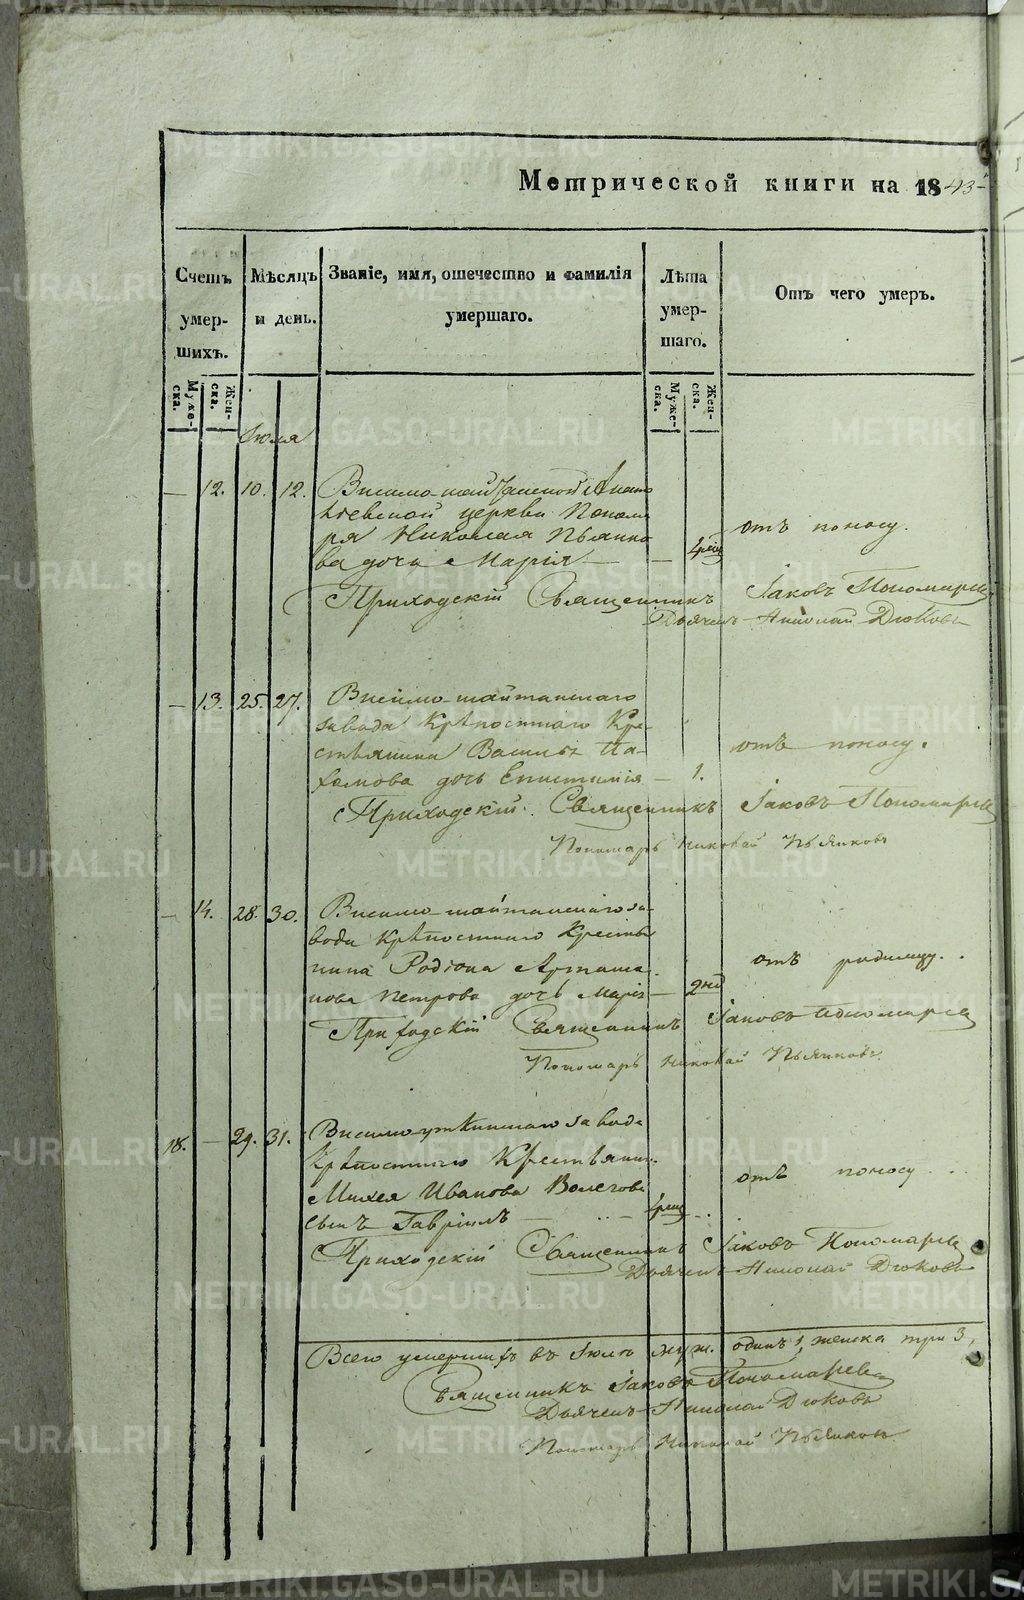 Метрической книги на 1843
Счетъ умер- шихъ.
Мѣсяцъ и день.
Званіе, имя, отечество и фамилія умершаго.
Лѣта умер- шаго.
Отъ чего умеръ.
Муже- ска.
Жен- ска.
Муже- ска.
Жен- ска.
Іюля
12. 10. 12. Висимо-шайтанской Анато
ліевской церкви Понома
ря Николая Пьянко
ва дочь Марія
отъ поносу.
Приходскій Священникъ Іаковъ Пономаревъ
Дьячекъ Николай Дюковъ
13. 25. 27. Висимо-шайтанскаго
завода крѣпостнаго Кре-
стьянина Василья Па-
хомова дочь Епистимія — 1.
отъ поносу.
Приходскій Священникъ Іаковъ Пономаревъ
Пономарь Николай Пьянковъ
14. 28. 30. Висимо-шайтанскаго за-
вода крѣпостнаго Крестья
нина Родіона Арташа
нова Петрова дочь Марія — 2 нед
отъ родимцу.
Приходскій Священникъ Іаковъ Пономаревъ
Пономарь Николай Пьянковъ.
18. — 29. 31. Висимо-уткинскаго завода
Крѣпостнаго Крестьянина
Михея Иванова Волегова
сынъ Гавріилъ
отъ поносу
Приходскій Священникъ Іаковъ Пономаревъ
Дьячекъ Николай Дюковъ
Всего умершихъ въ Іюлѣ муж. одинъ 1, женска три 3,
Священникъ Іаковъ Пономаревъ
Дьячекъ Николай Дюковъ
Пономарь Николай Пьянковъ
METRIKI.GASO-URAL.RU